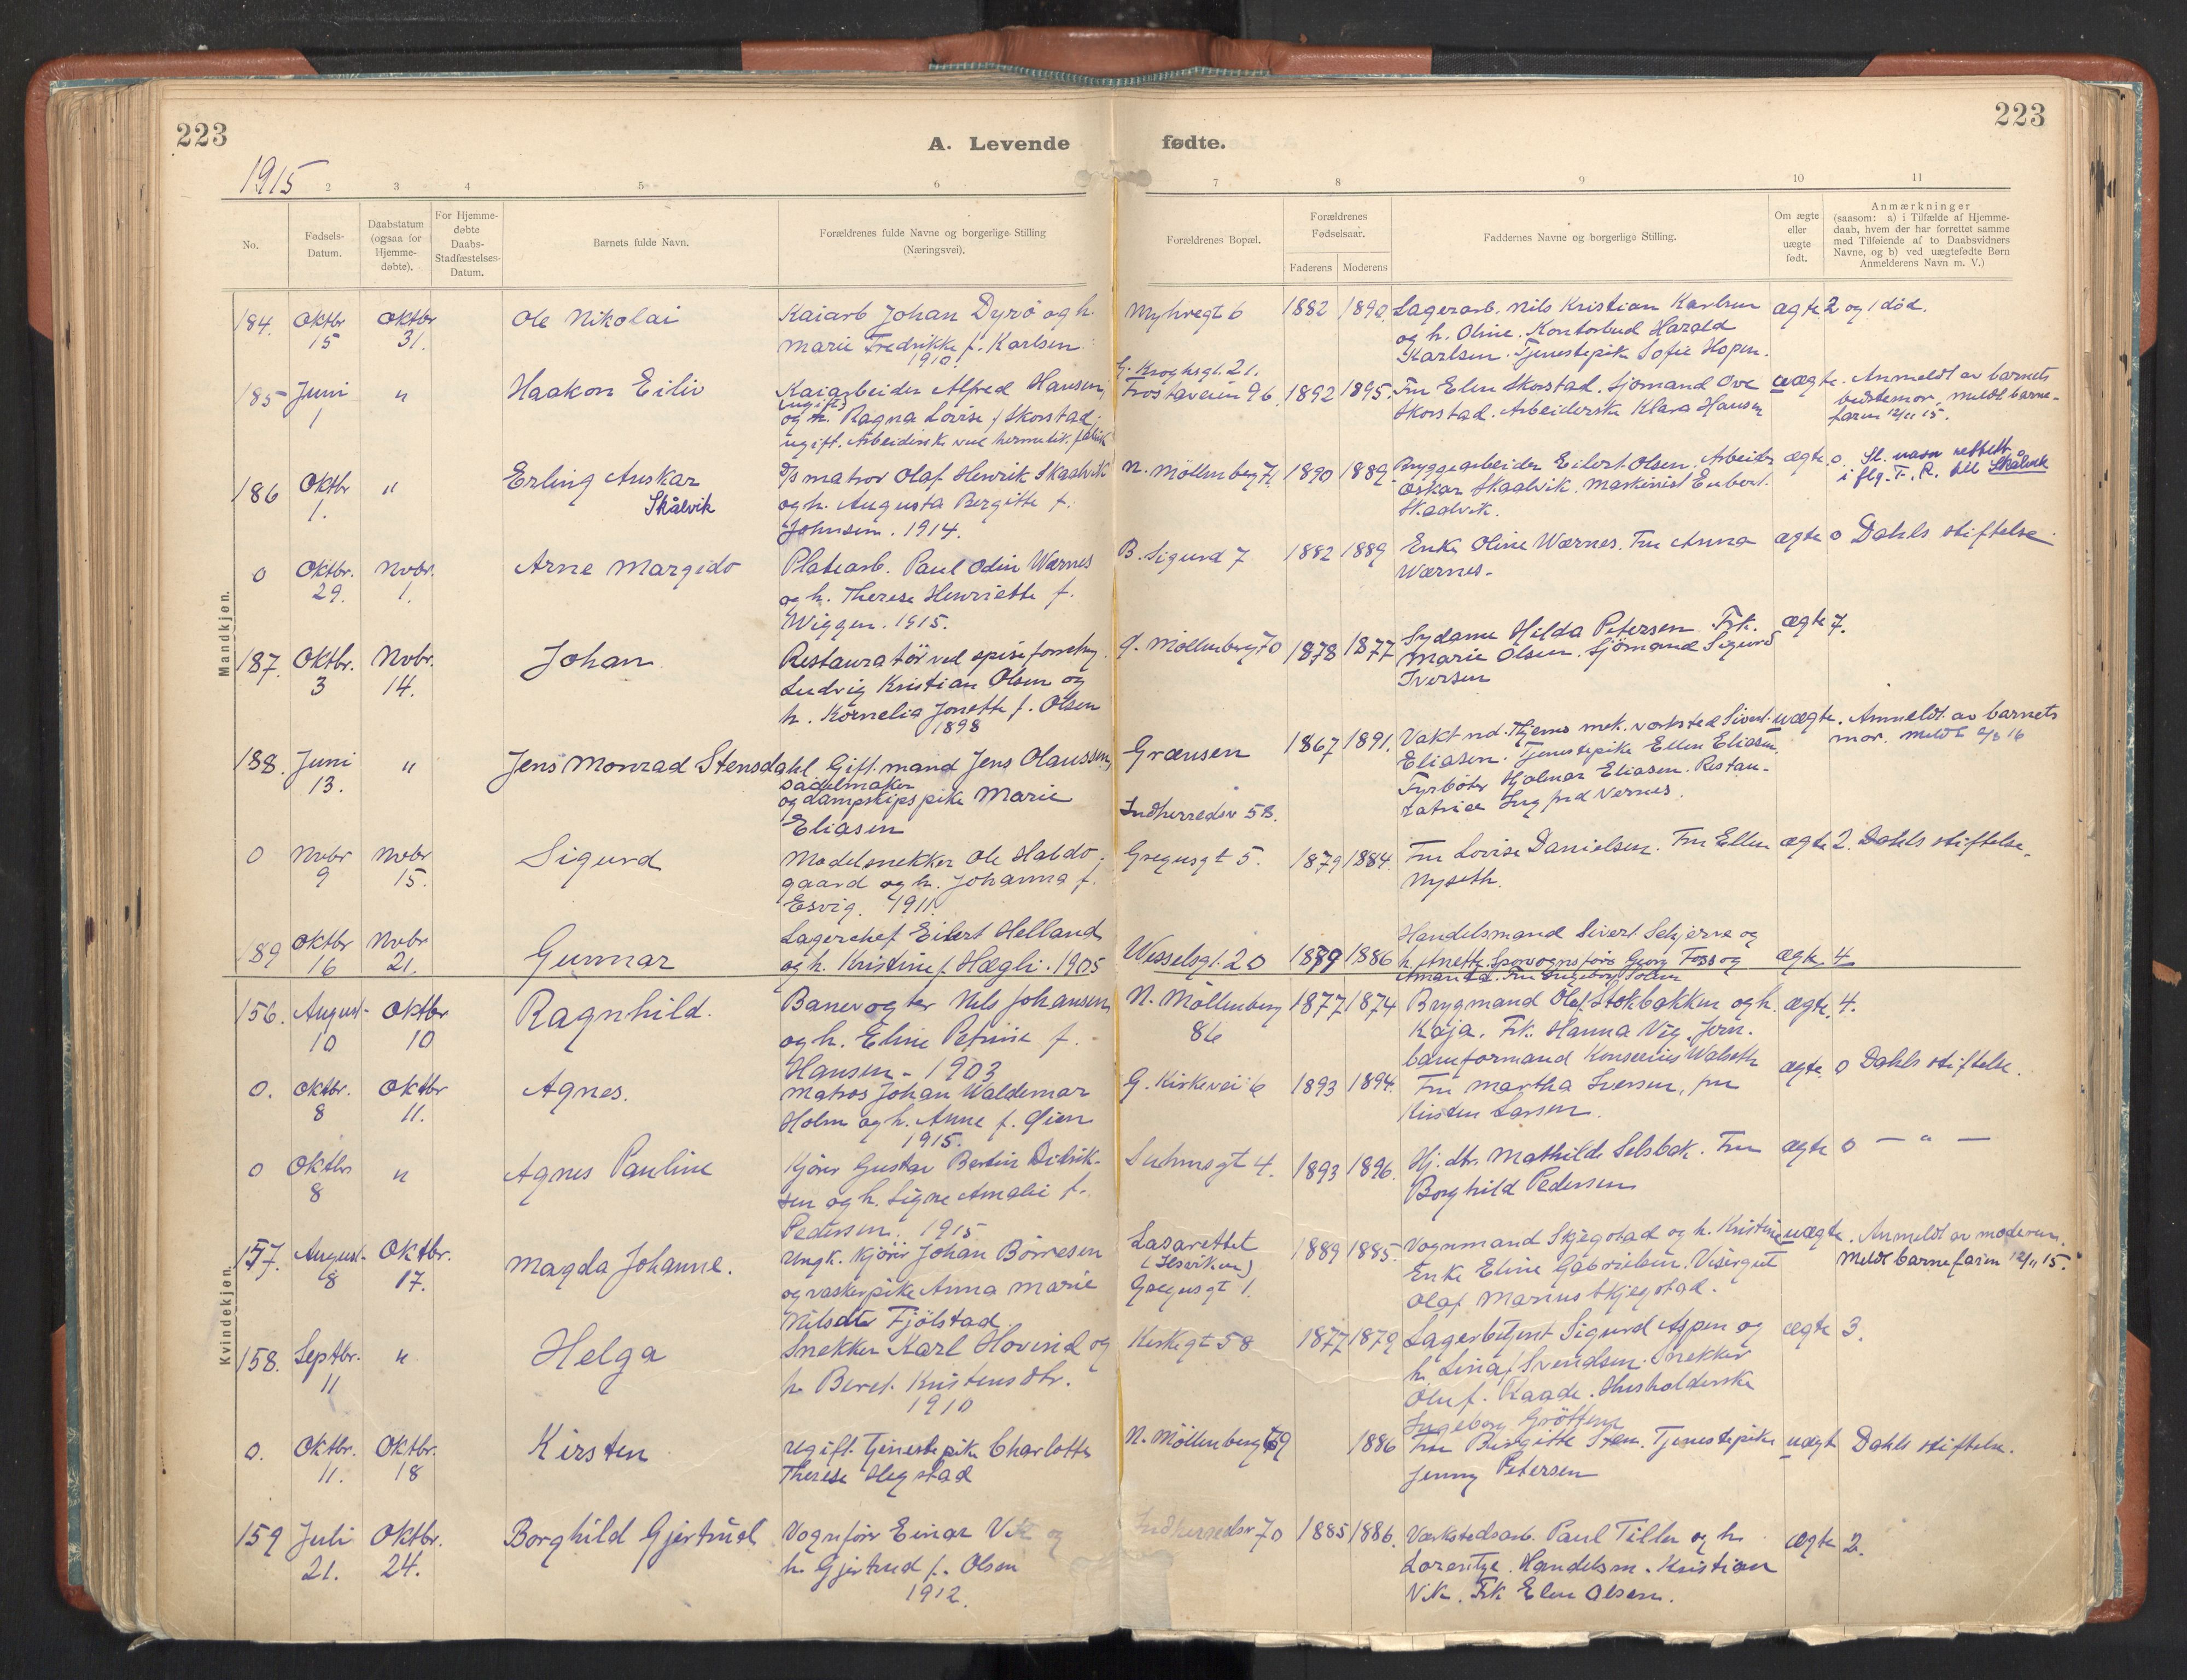 223
223
A. Levende
fødte.
1915
2
3
4
5
6
7
8
9
10
11
No.
Fødsels-
Datum.
Daabstatum
(ogsaa for
Hjemme-
døbte).
For Hjemme-
døbte
Daabs-
Stadfæstelses-
Datum.
Barnets fulde Navn.
Forældrenes fulde Navne og borgerlige Stilling
(Næringsvei).
Forældrenes Bopæl.
Forældrenes
Fødselsaar.
Faderens
Moderens
Faddernes Navne og borgerlige Stilling.
Om ægte
eller
uægte
født.
Anmærkninger
(saasom: a) i Tilfælde af Hjemme-
daab, hvem der har forrettet samme
med Tilføiende af to Daabsvidners
Navne, og b) ved uægtefødte Børn
Anmelderens Navn m. V.)
Mandkjøn.
184. Oktbr 15
Oktbr 31.
Ole Nikolai
Kaiarb Johan Dyrö og h.
Marie Fredrikke f. Karlsen
1910.
Myhregt 6
1882 1890.
Lagerarb. Nils Kristian Karlsen
og h. Oline. Kontorbud Harald
Karlsen. Tjenestepike Sofie Hopen.
ægte 2 og 1 död.
185 Juni 1
"
Haakon Eiliv
Kaiarbeider Alfred Hansen,
(ugift)
og h. Ragna Lovise f. Skorstad,
ugift. Arbeiderske ved hermetik. fabrik
G. Kroghsgt. 21.
Frostaveien 96.
1892 1895.
Fru Elen Skorstad. Sjömand Ove
Skorstad. Arbeiderske Klara Hansen
uægte. Anmeldt av barnets
bestemor. Meldt barne-
faren 12/11 15.
186 Oktbr 1.
"
Erling Anskar
Skålvik
D/s matros Olaf Henrik Skaalvik
og h. Augusta Bergitte f.
Johnsen. 1914.
N. Möllenberg 71.
1890 1889.
Bryggearbeider Eilert Olsen. Arbeider
Oskar Skaalvik. Maskinist Enbert
Skaalvik.
ægte 0 Sl. navn rettet
i flg. F. R. til Skålvik
0 Oktbr. 29.
Nvbr. 1.
Arne Margido
Platearb. Paul Odin Wærnes
og h. Therese Henriette f.
Wiggen. 1915.
B. Sigurd 7
1882 1889
Enke Oline Wærnes. Fru Anna
Wærnes.
ægte 0 Dahls stiftelse
187. Oktbr. 3
Nvbr. 14.
Johan
Restauratör ved spiseforretng
Ludvig Kristian Olsen og
h. Kornelia Jonette f. Olsen
1898
Ö. Möllenberg 70
1878 1877
Sydame Hilda Petersen. Frk.
Marie Olsen. Sjömand Sigurd
Iversen
ægte 7.
188. Juni 13.
"
Jens Monrad Stensdahl
Gift mand Jens Olaussen,
sadelmaker
og dampskipspike Marie
Eliasen
Grænsen
Indherredsv 58.
1867 1891.
Vakt ved Thjems mek. verksted Sivert
Eliasen. Tjenestepike Ellen Eliasen.
Fyrböter Hjalmar Eliasen. Restau-
ratrice Ingfrid Vernes.
uægte. Anmeldt av barnets
mor. Meldt 2/3 16
0 Nvbr 9
Nvbr 15.
Sigurd
Modelsnekker Ole Haldo-
gaard og h. Johanna f.
Esvig. 1911.
Gregusgt 5.
1879 1884.
Fru Lovise Danielsen. Fru Ellen
Nyseth.
ægte 2. Dahls stiftelse.
189 Oktbr 16
Nvbr 21.
Gunnar
Lagerchef Eilert Helland
og h. Kristine f. Hægli. 1905
Wesselsgt. 20
1889 1886
Handelsmand Sivert Schjerve og
h. Anette. Sporvognsförer Georg Foss og
Amanda. Fru Ingeborg Solem
ægte 4
Kvindekjøn.
156. August 10
Oktbr 10
Ragnhild.
Banevogter Nils Johansen
og h. Eline Petrine f.
Hansen - 1903
N. Möllenberg
86
1877 1874
Brygmand Olaf Stokbakken og h.
Kaja. Frk. Hanna Vig. Jern-
baneformand Konserius Walseth
ægte. 4.
0. Oktbr. 8
Oktbr 11.
Agnes.
Matros Johan Waldemar
Holm og h. Anne f. Øien
1915.
G. Kirkevei 6
1893 1894.
Fru Martha Iversen, fru
Kirsten Larsen.
ægte 0 Dahls stiftelse.
0 Oktbr 8
"
Agnes Pauline
Kjörer Gustav Bertin Didrik-
sen og h. Signe Amalie f.
Pedersen. 1915
Suhmsgt 4.
1893 1896.
Hj. dtr. Mathilde Selsbak. Fru
Borghild Pedersen
ægte 0 — " —
157. August 8
Oktbr. 17.
Magda Johanne.
Ungk. Kjörer Johan Börresen
og vaskerpike Anna Marie
Nilsdtr Fjölstad
Lasarettet
(Ilsviken)
Gregusgt 1.
1889 1885.
Vognmand Skjegstad og h. Kristine
Enke Eline Gabrielsen. Visergut
Olaf Marius Skjegstad.
uægte. Anmeldt av moderen.
Meldt barnefaren 12/11 15.
158. Septbr. 11
"
Helga
Snekker Karl Hovind og
h. Beret Kristensdtr.
1910
Kirkegt 58
1877 1879
Lagerbetjent Sigurd Aspen og
h. Lina f. Svendsen. Snekker
Oluf Raade. Husholderske
Ingeborg Gröttem
ægte 3.
0. Oktbr. 11.
Oktbr. 18
Kirsten
Ugift Tjenestepike Charlotte
Therese Hegstad
N. Möllenberg 69
1886
Fru Birgitte Sten. Tjenestepike
Jenny Petersen
uægte Dahls stiftelse.
159 Juli 21.
Oktbr. 24.
Borghild Gjertrud
Vognförer Einar Vik og
h. Gjertrud f. Olsen
1912.
Indherredsv 70
1885 1886.
Verkstedsarb. Paul Tiller og h.
Lorentze. Handelsm. Kristian
Vik. Frk Elen Olsen.
ægte 2.